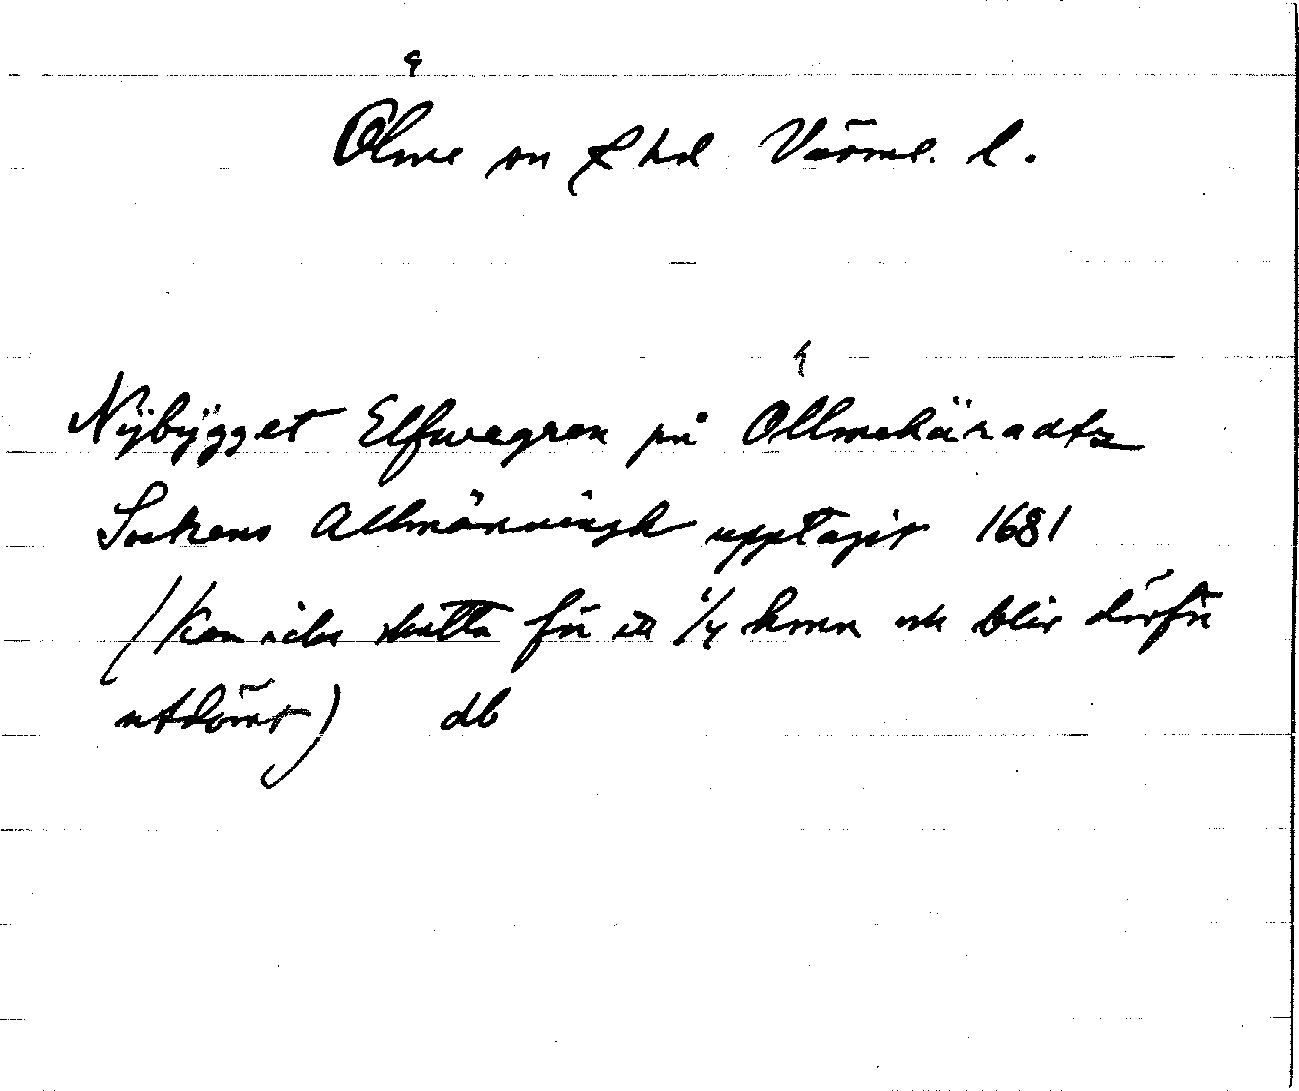 Ölme sn & hd Värml. l.
Nÿbÿgget Elfwegren på Öllmehäradtz
Sokens Allmänningh upptagit 1681
(Kan icke skatta för en 1/4 hmn och blir därför
utdömt) db